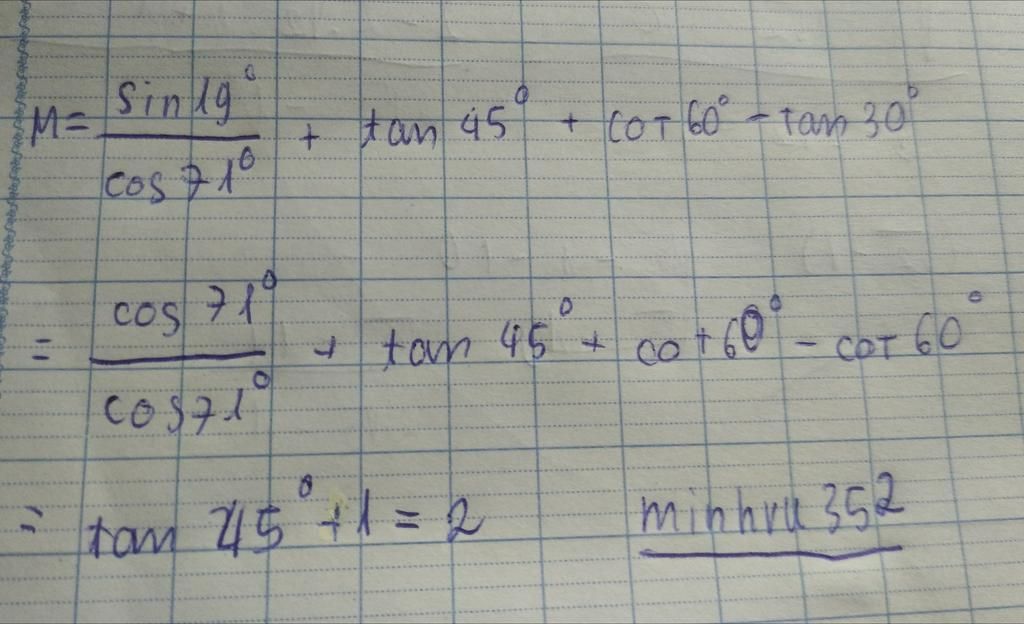 M = sin 19° / cos 71° + tan 45° + cot 60° - tan 30°
= cos 71° / cos 71° + tan 45° + cot 60° - cot 60°
= tan 45° + 1 = 2
minhvu352